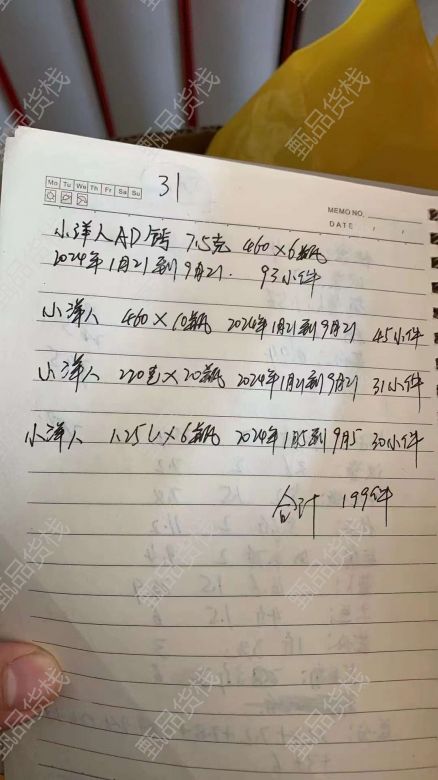 Mo Tu We Th Fr Sa Su
31
MEMO NO.
DATE / /
小洋人AD钙 7.5克 460×6瓶
2024年1月21到9月21. 93小件
小洋人 460×10瓶 2024年1月21到9月21 45小件
小洋人 220克×20瓶 2024年1月21到9月21 31小件
小洋人 1.25L×6瓶 2024年1月5到9月5 30小件
合计 199件
甄品货栈